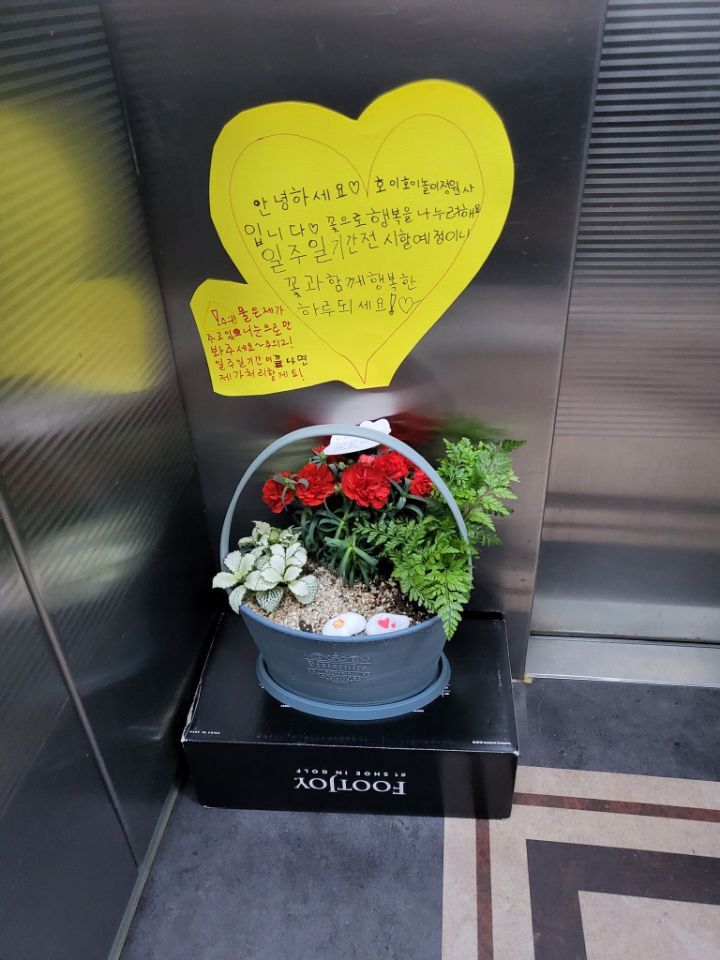 안녕하세요♡ 호이호이놀이정원사
입니다♡ 꽃으로행복을 나누려해요
일주일기간전시할예정이니
꽃과함께행복한
하루되세요!♡
물은제가
주고있으니눈으로만
봐주세요~주의2!
일주일기간이끝나면
제가처리할게요!
FOOTJOY
#1 SHOE IN GOLF